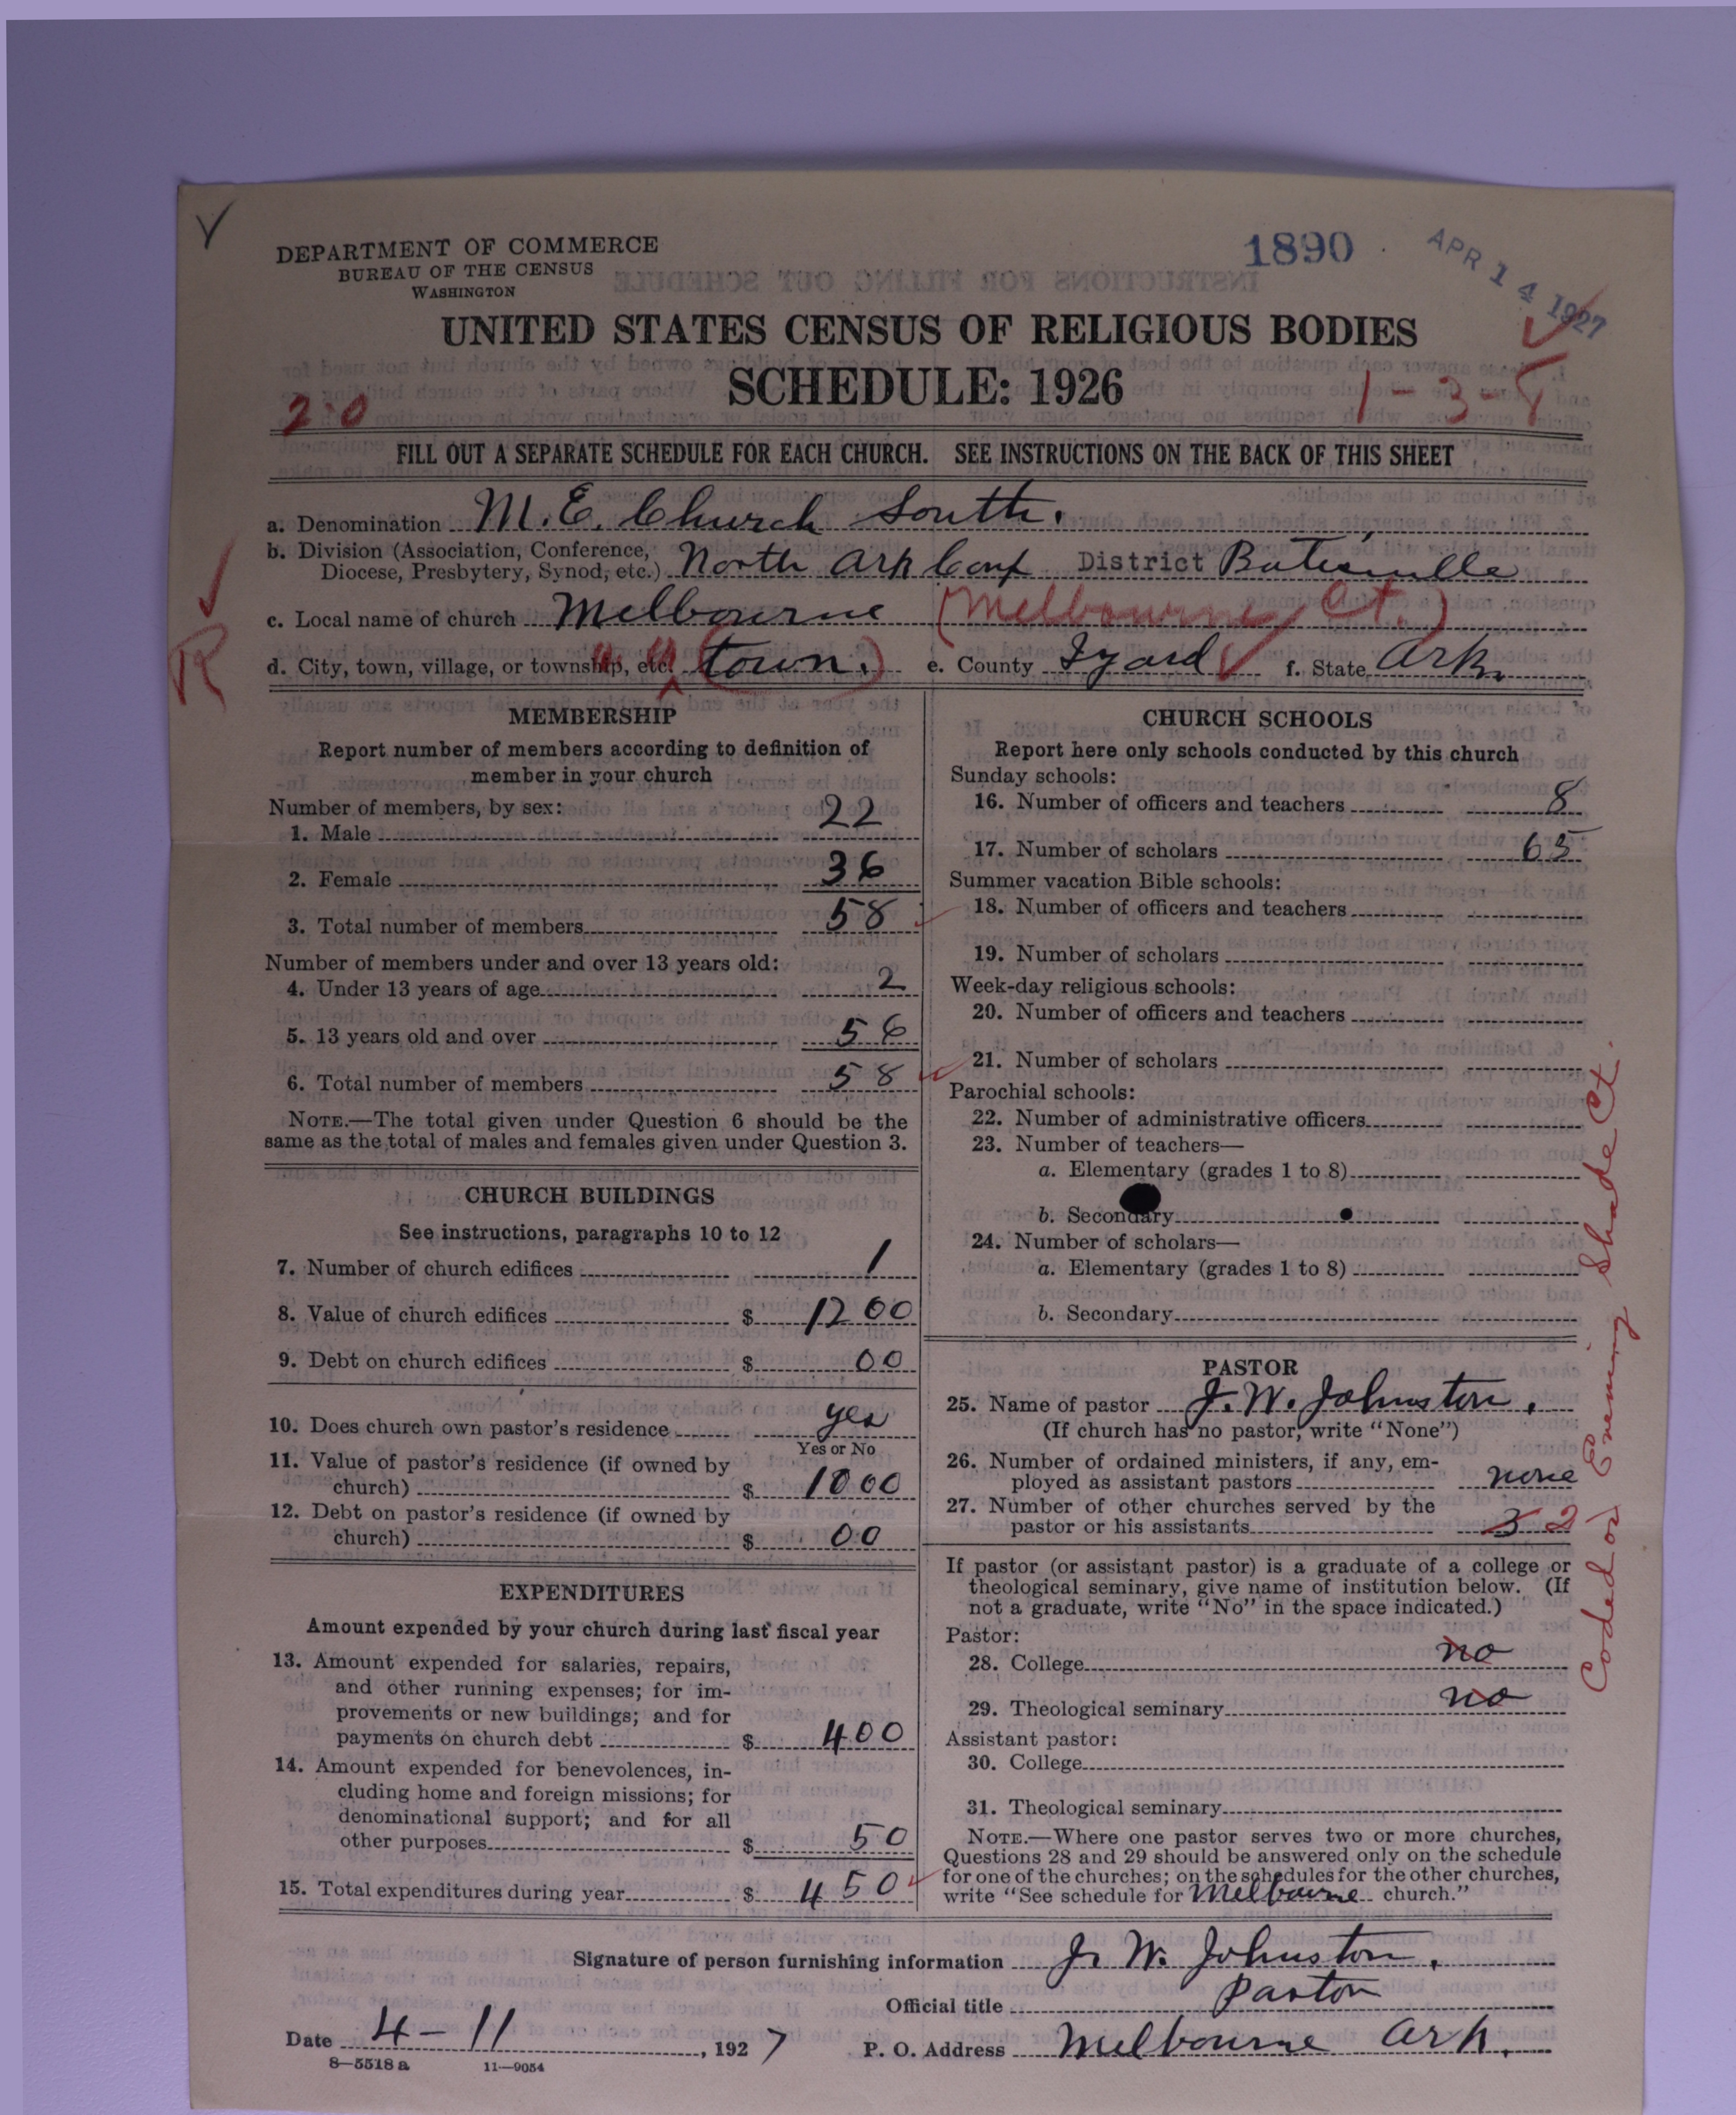 DEPARTMENT OF COMMERCE
BUREAU OF THE CENSUS
WASHINGTON
1890
APR 14 1927
UNITED STATES CENSUS OF RELIGIOUS BODIES
SCHEDULE: 1926
20
1-3-8
FILL OUT A SEPARATE SCHEDULE FOR EACH CHURCH. SEE INSTRUCTIONS ON THE BACK OF THIS SHEET
a. Denomination M.E. Church South.
b. Division (Association, Conference, Diocese, Presbytery, Synod, etc.) North Ark Conf District Batesville
c. Local name of church Melbourne (Melbourne Ct.)
R
d. City, town, village, or township, etc. " " (town.) e. County Izard f. State Ark.
MEMBERSHIP
Report number of members according to definition of
member in your church
Number of members, by sex:
1. Male 22
2. Female 36
3. Total number of members 58
Number of members under and over 13 years old:
4. Under 13 years of age 2
5. 13 years old and over 56
6. Total number of members 58
NOTE.—The total given under Question 6 should be the
same as the total of males and females given under Question 3.
CHURCH BUILDINGS
See instructions, paragraphs 10 to 12
7. Number of church edifices 1
8. Value of church edifices $ 1200
9. Debt on church edifices $ 00
10. Does church own pastor's residence yes
Yes or No
11. Value of pastor's residence (if owned by
church) $ 1000
12. Debt on pastor's residence (if owned by
church) $ 00
EXPENDITURES
Amount expended by your church during last fiscal year
13. Amount expended for salaries, repairs,
and other running expenses; for im-
provements or new buildings; and for
payments on church debt $ 400
14. Amount expended for benevolences, in-
cluding home and foreign missions; for
denominational support; and for all
other purposes $ 50
15. Total expenditures during year $ 450
CHURCH SCHOOLS
Report here only schools conducted by this church
Sunday schools:
16. Number of officers and teachers 8
17. Number of scholars 65
Summer vacation Bible schools:
18. Number of officers and teachers
19. Number of scholars
Week-day religious schools:
20. Number of officers and teachers
21. Number of scholars
Parochial schools:
22. Number of administrative officers
23. Number of teachers—
a. Elementary (grades 1 to 8)
b. Secondary
24. Number of scholars—
a. Elementary (grades 1 to 8)
b. Secondary
PASTOR
25. Name of pastor J. W. Johnston.
(If church has no pastor, write "None")
26. Number of ordained ministers, if any, em-
ployed as assistant pastors none
27. Number of other churches served by the
pastor or his assistants 3 2
If pastor (or assistant pastor) is a graduate of a college or
theological seminary, give name of institution below. (If
not a graduate, write "No" in the space indicated.)
Pastor:
28. College no
29. Theological seminary no
Assistant pastor:
30. College
31. Theological seminary
NOTE.—Where one pastor serves two or more churches,
Questions 28 and 29 should be answered only on the schedule
for one of the churches; on the schedules for the other churches,
write "See schedule for Melbourne church."
Coded on Evening Shade Ct.
Signature of person furnishing information J. W. Johnston.
Official title Pastor
Date 4-11, 1927 P. O. Address Melbourne Ark.
8—5518 a 11—9054